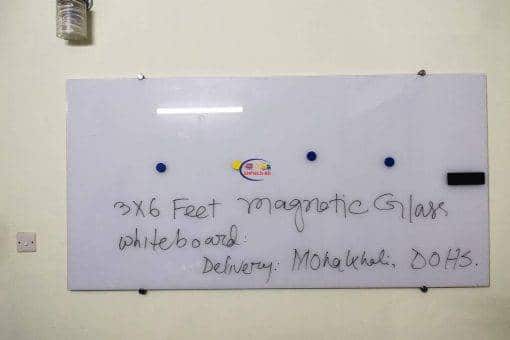 3X6 Feet magnetic Glass
whiteboard:
Delivery: Mohakhali, DOHS.